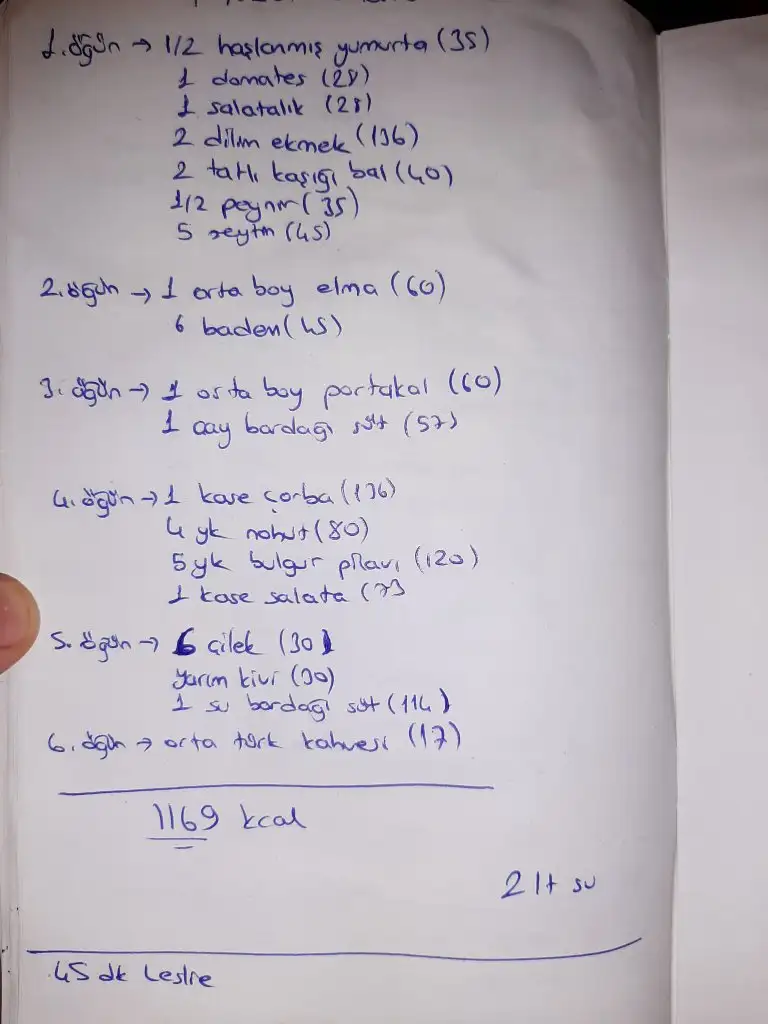 1. öğün → 1/2 haşlanmış yumurta (35)
1 domates (28)
1 salatalık (28)
2 dilim ekmek (136)
2 tatlı kaşığı bal (40)
1/2 peynir (35)
5 zeytin (45)
2. öğün → 1 orta boy elma (60)
6 badem (45)
3. öğün → 1 orta boy portakal (60)
1 çay bardağı süt (57)
4. öğün → 1 kase çorba (136)
4 yk nohut (80)
5 yk bulgur pilavı (120)
1 kase salata (73
5. öğün → 6 çilek (30)
yarım kivi (30)
1 su bardağı süt (114)
6. öğün → orta türk kahvesi (17)
1169 kcal
2 lt su
45 dk Leslie